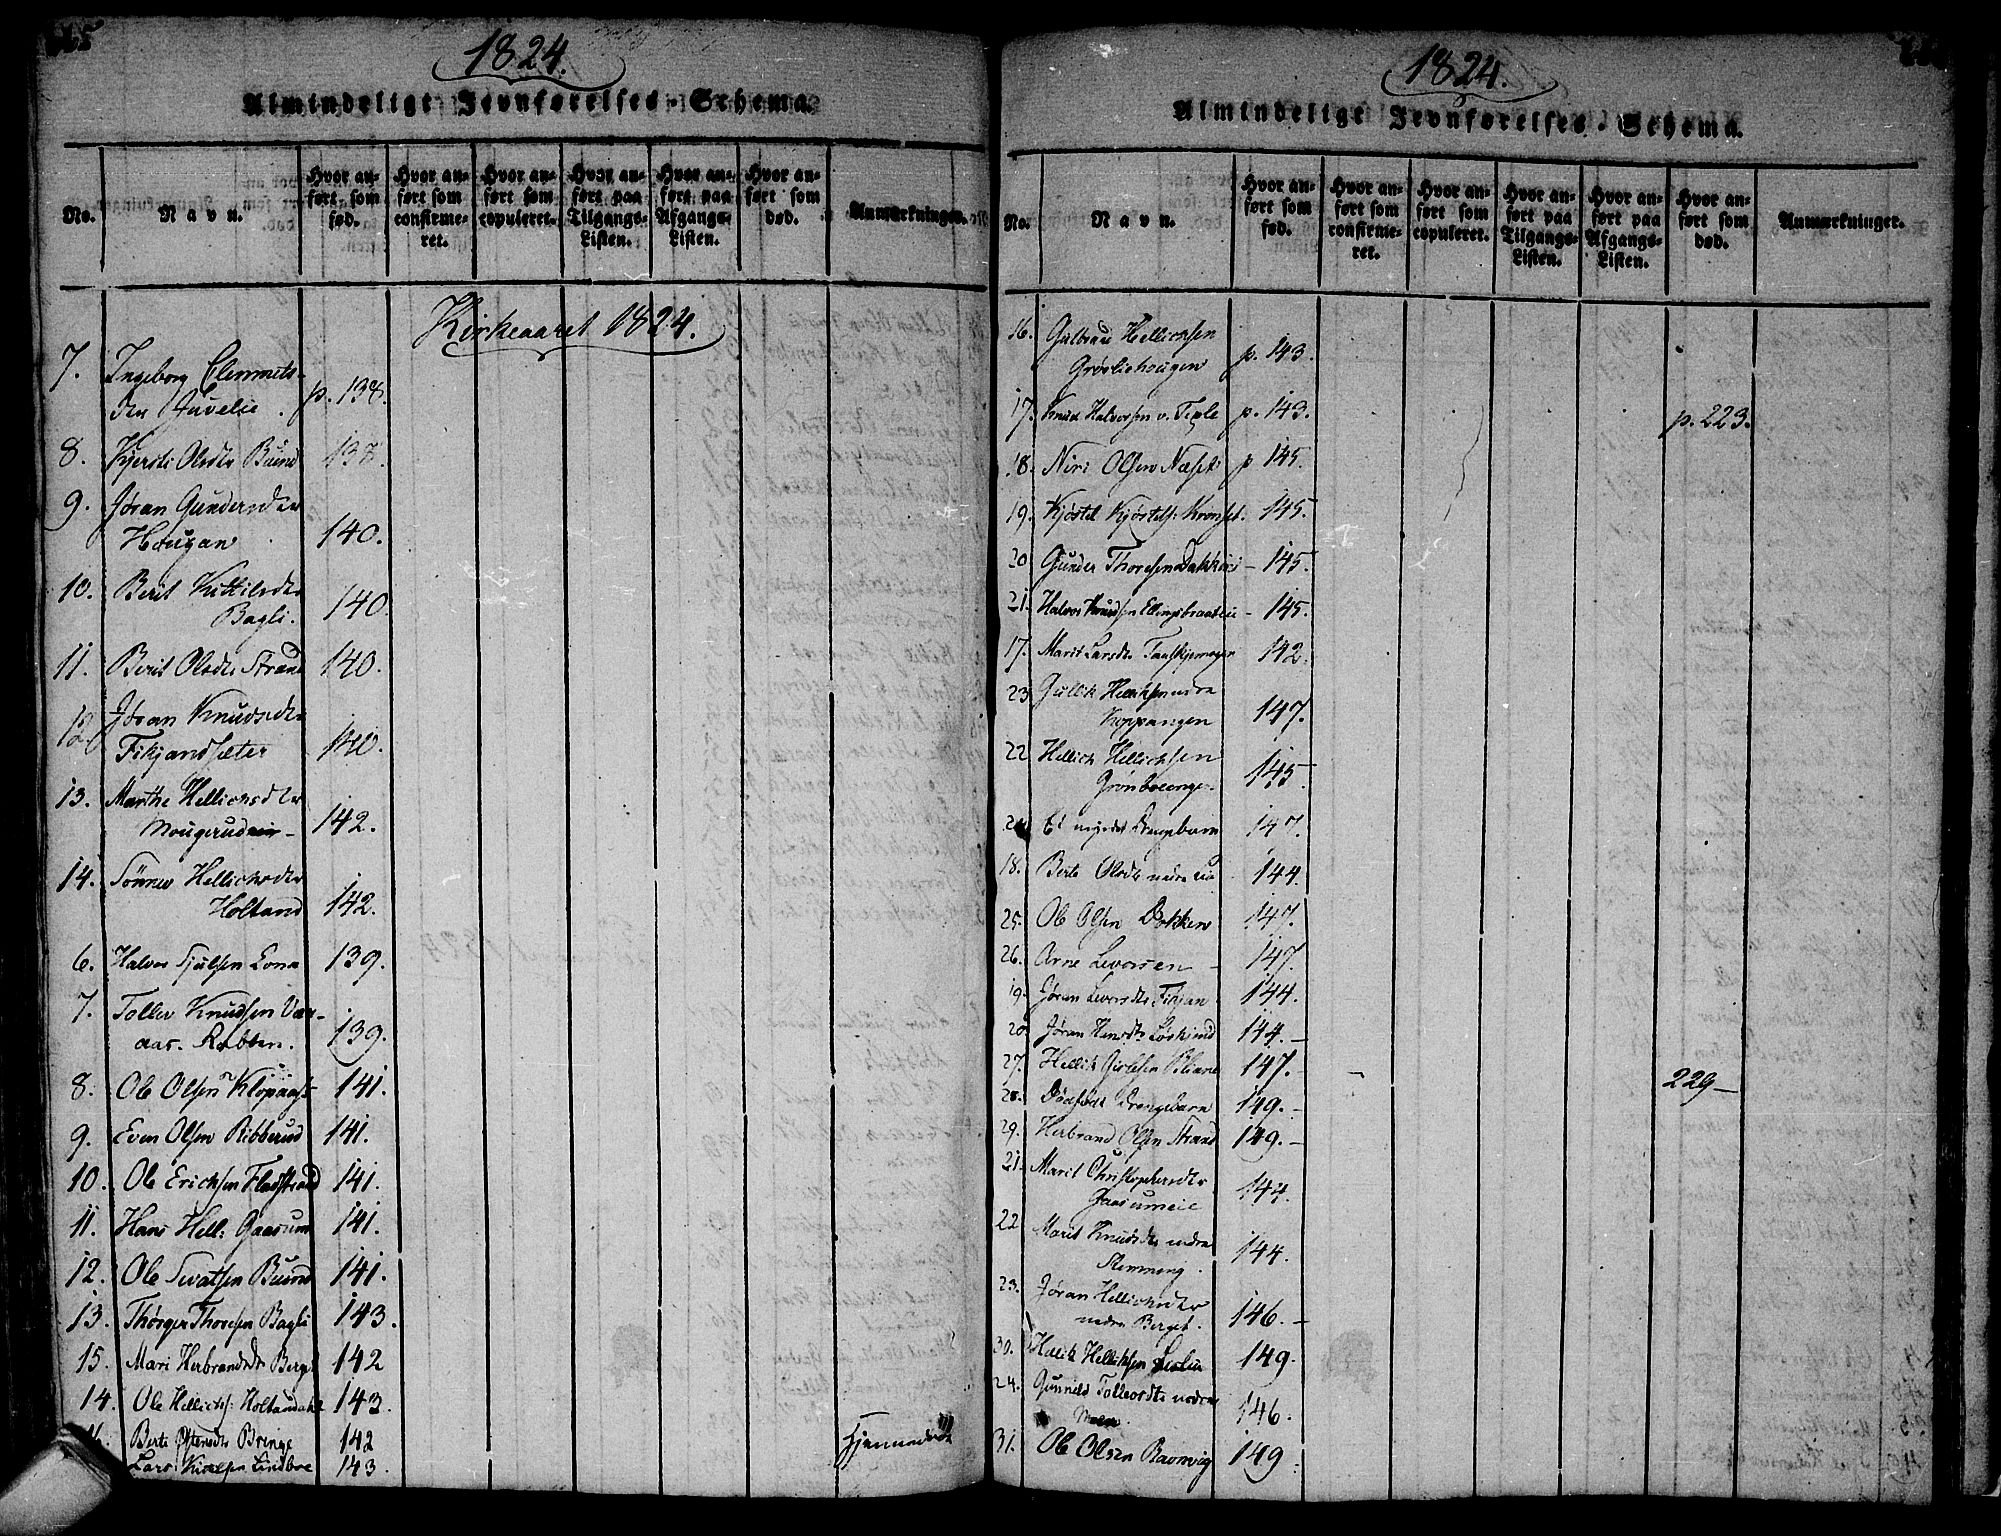 1824.
Almindeligt Jevnførelses-Schema.
No.
Navn.
Hvor anført som fød.
Hvor anført som confirmeret.
Hvor anført som copuleret.
Hvor anført paa Tilgangs-Listen.
Hvor anført paa Afgangs-Listen.
Hvor anført som død.
Anmærkninger.
Kirkeaaret 1824.
7. Ingeborg Clemmets-
dtr Juvelie. p. 138.
8. Kjersti Olsdtr Buind 138.
9. Jøran Gundersdtr
Hougan 140.
10. Berit Kittilsdtr
Bagli. 140.
11. Berit Olsdtr Strand 140.
12. Jøran Knudsdtr
Fikjandsæter 140.
13. Marthe Hellichsdtr
Mougerudeie - 142.
14. Sønnev Hellichsdtr
Holtand 142.
6. Halvor Sjulsen Lona 139.
7. Tollev Knudsen Vær-
aas. Rabben. 139.
8. Ole Olsen 141.
9. Even Olsen Ribberud 141.
10. Ole Erichsen Fladstrand 141.
11. Hans Hell: Gaasum 141.
12. Ole Svatsen Buind 141.
13. Thorger Thoresen Bagli 143.
15. Mari Herbrandsdtr Berget 142
14. Ole Hellichs: Holtandahl 143.
16. Berte Østensdtr Bringe 142
Lars Lindboe 143.
1824.
Almindeligt Jevnførelses-Schema.
No.
Navn.
Hvor anført som fød.
Hvor anført som confirmeret.
Hvor anført som copuleret.
Hvor anført paa Tilgangs-Listen.
Hvor anført paa Afgangs-Listen.
Hvor anført som død.
Anmærkninger.
16. Gulbrand Hellichsen
Grøsliehougen p. 143.
17. Knud Halvorsen v. Teple p. 143. p. 223.
18. Niri Olsen Næset p 145.
19. Kjøstel Kjøstels: Kronset. 145.
20 Gunder Thoresen Dokken - 145.
21. Halvor Knudsen Ellingsbraateie - 145.
17. Marit Larsdtr 142.
23 Gullik nedre
Koppangen 147.
22 Hellich Hellichsen
Grønboeenger. 145.
24 Et udøbt Drengebarn 147.
18. Berte Olsdtr nedre Lia 144.
25. Ole Olsen Dokken 147.
26. Arne Levorsen - 147.
19. Jøran Levorsdtr Fikjan 144.
20. Jøran Hansdtr 144. -
27. Hellik 147. -
28. Dødfødt Drengebarn 149. - 229 -
29. Herbrand Olsen Strand 149. -
21. Marit Christophersdtr
Gaasumeie 144.
22 Marit Knudsdtr nedre
Stemmeng. 144.
23. Jøran Hellichsdtr
nedre Berget. 146. -
30. Halik Hellichsen 149.
24. Gunnild Tollevsdtr nedre
Moen. 146.
31. Ole Olsen Ravnvig 149.